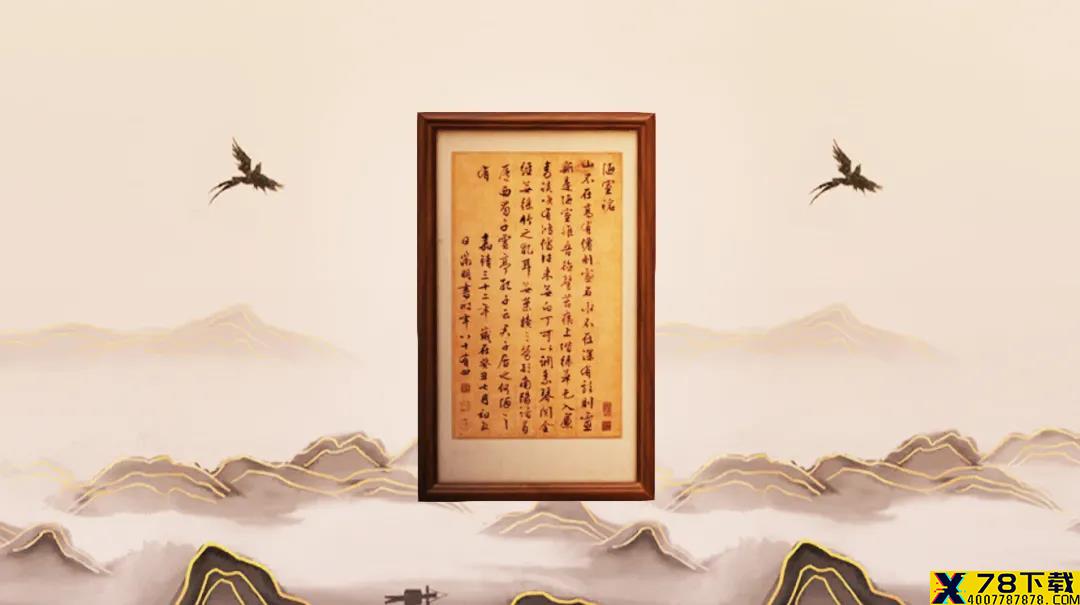 陋室銘
山不在高有僊則靈名水不在深有龍則靈
斯是陋室惟吾德馨苔痕上階綠草色入簾
青談笑有鴻儒往來無白丁可以調素琴閱金
經無絲竹之亂耳無案牘之勞形南陽諸葛
廬西蜀子雲亭孔子云君子居之何陋之
有
嘉靖三十二年歲在癸丑七月初
日徵明書時年八十有四
78下载
4007787878.COM